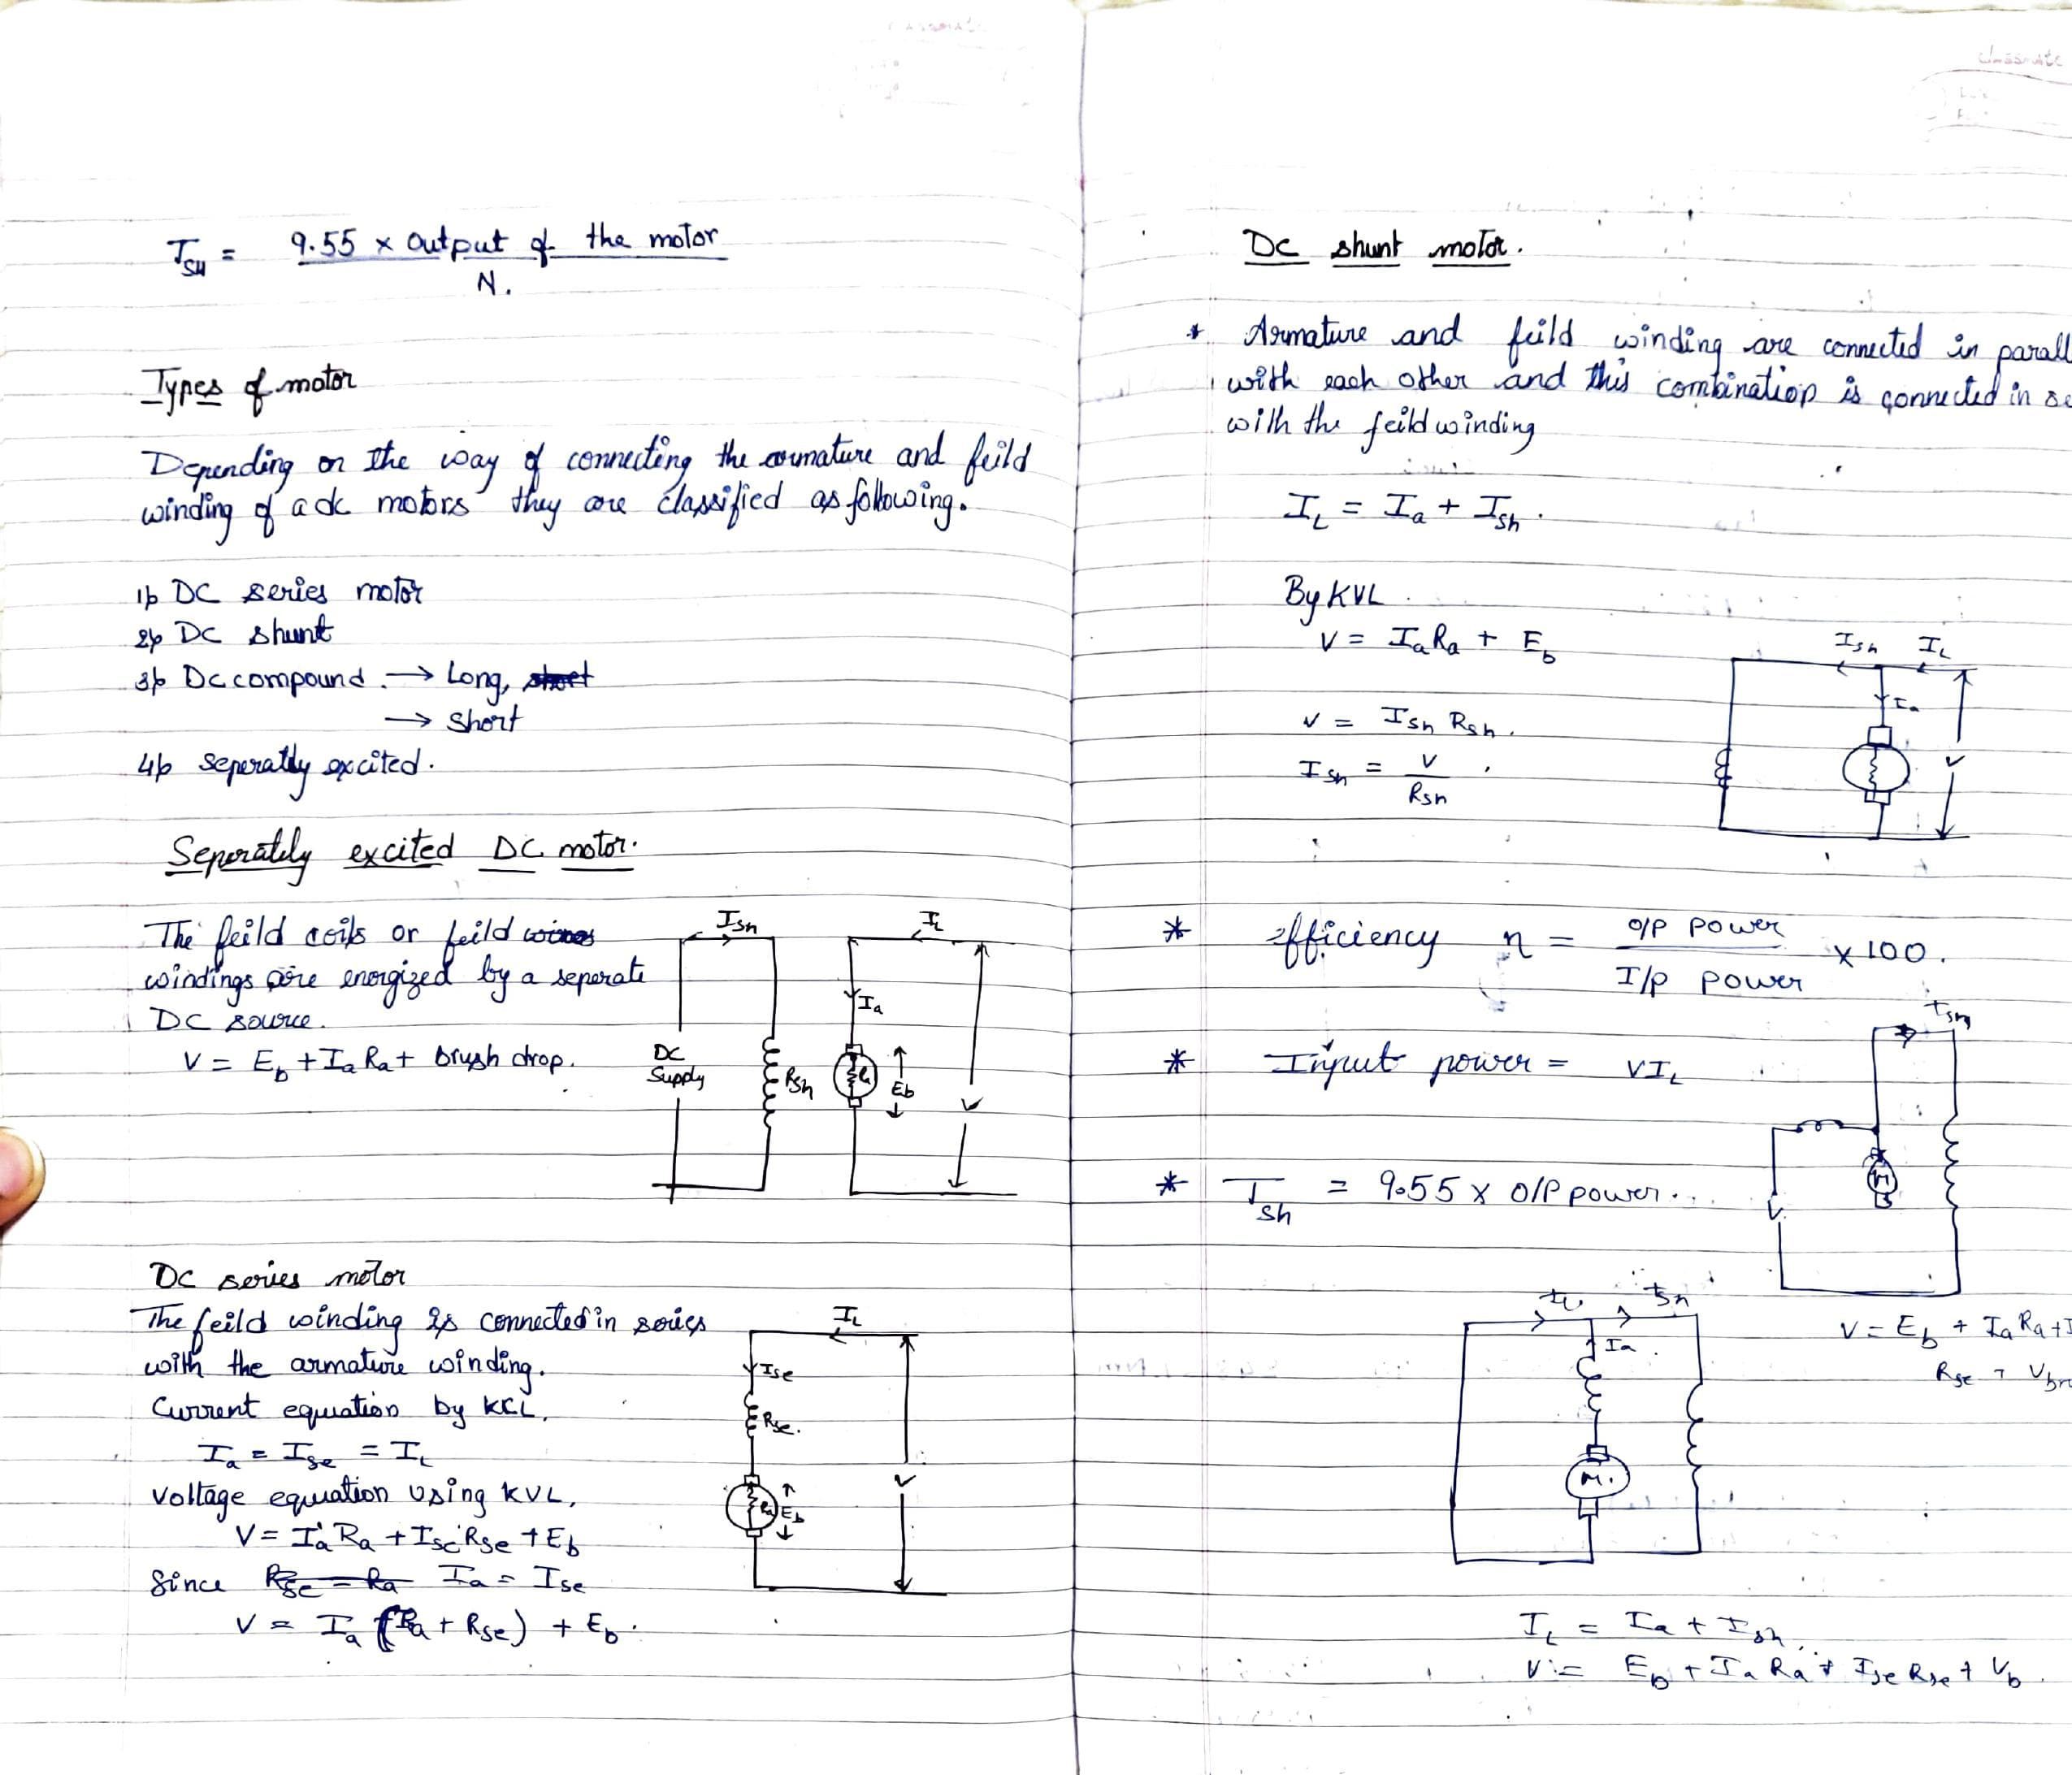 T_SH = 9.55 x output of the motor
N.
Types of motor
Depending on the way of connecting the armature and feild
winding of a dc motors they are classified as following.
1) DC series motor
2) DC shunt
3) Dc compound. → Long, short
→ Short
4) seperatly excited.
Seperately excited DC motor.
The feild coils or feild wires
windings are energized by a seperate
DC source.
V = E_b + I_a R_a + brush drop.
I_sh
I_L
I_a
DC
Supply
R_sh
R_a
E_b
V
DC series motor
The feild winding is connected in series
with the armature winding.
Current equation by KCL,
I_a = I_se = I_L
voltage equation using KVL,
V = I_a R_a + I_se R_se + E_b
Since R_se = R_a I_a = I_se
V = I_a (R_a + R_se) + E_b.
I_L
I_se
R_se.
R_a
E_b
V
DC shunt motor.
* Armature and feild winding are connected in parall
with each other and this combination is connected in se
with the feild winding
I_L = I_a + I_sh.
By KVL.
V = I_a R_a + E_b
V = I_sh R_sh.
I_sh = V
R_sh
I_sh I_L
I_a
V
* efficiency η = O/P power x 100.
I/p power
* Input power = VI_L
* T_sh = 9.55 x O/P power...
I_sh
M
V
V = E_b + I_a R_a + I
R_se + V_br
I_L I_sh
I_a.
M.
I_L = I_a + I_sh,
V = E_b + I_a R_a + I_se R_se + V_b.